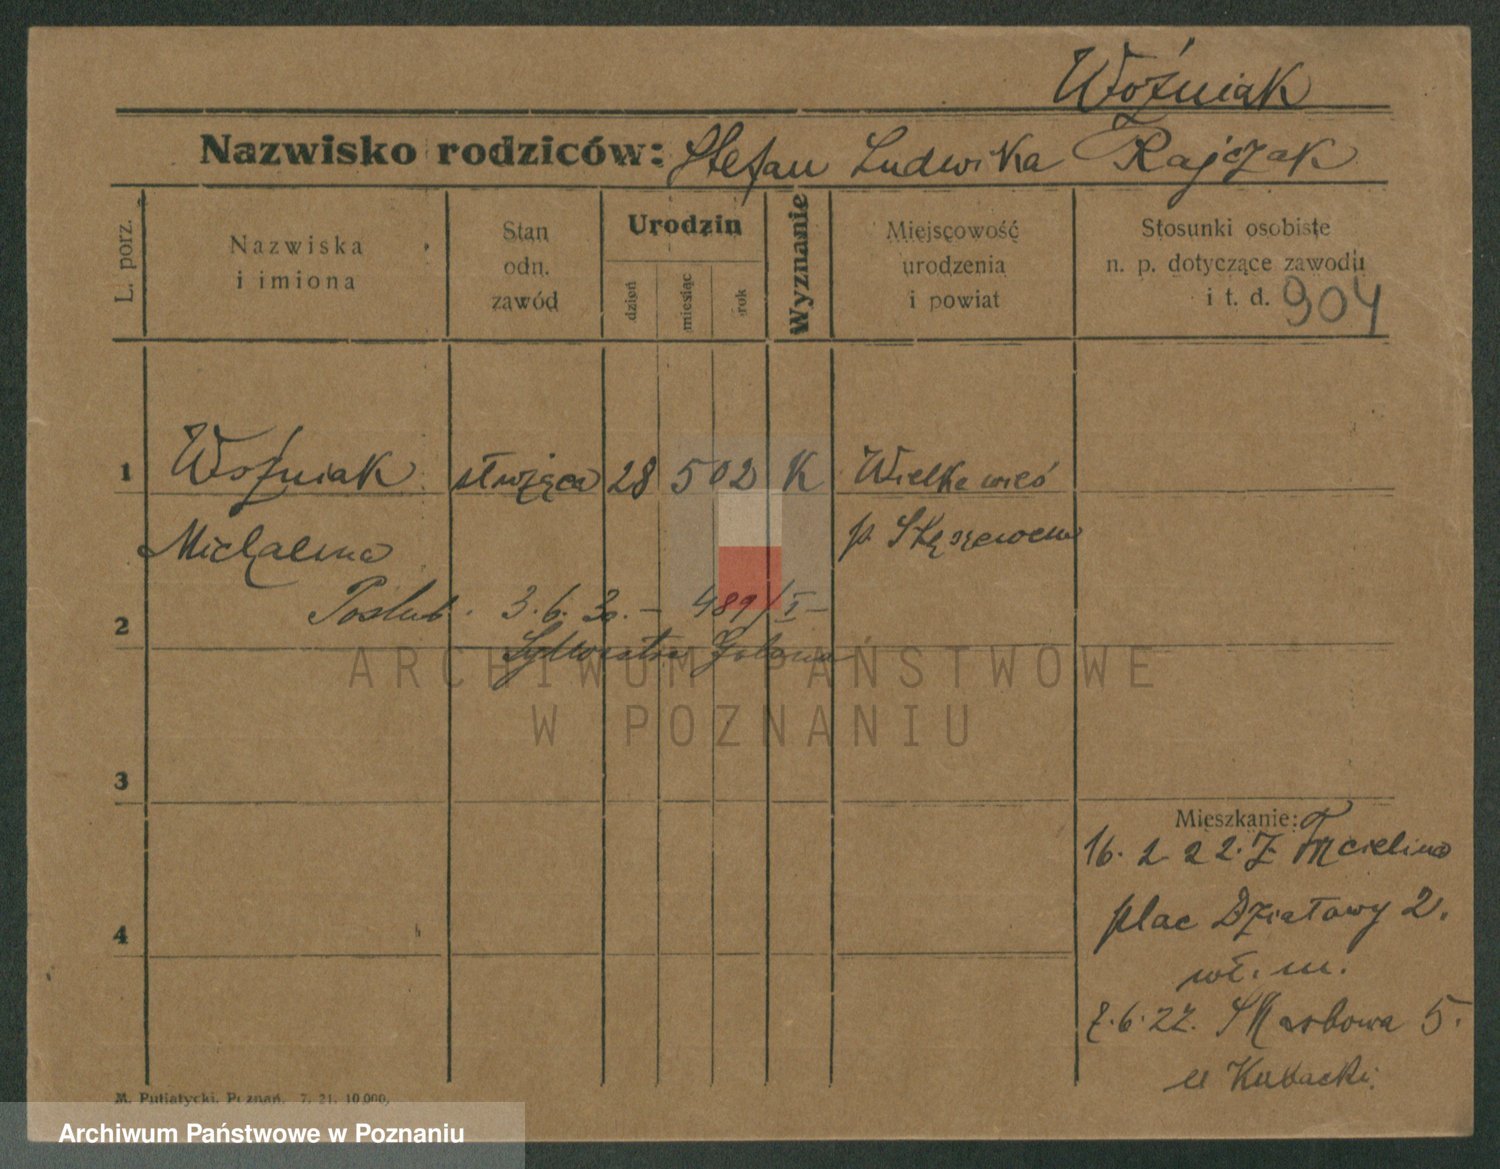 Woźniak
Nazwisko rodziców: Stefan Ludwika Rajczak
L. porz.
Nazwiska
i imiona
Stan
odn.
zawód
Urodzin
dzień
miesiąc
rok
Wyznanie
Miejscowość
urodzenia
i powiat
Stosunki osobiste
n. p. dotyczące zawodu
i t. d. 904
1 Woźniak służąca 28 5 02 K Wielka wieś
Michalina p.
2 Poślub. 3.6.30. – 489/I –
ARCHIWUM PAŃSTWOWE
W POZNANIU
3
Mieszkanie:
16. 2 22. z
4
plac Działowy 2.
wł. m.
7.6.22. Skarbowa 5.
u Kubacki.
M. Putiatycki, Poznań. 7. 21. 10.000.
Archiwum Państwowe w Poznaniu